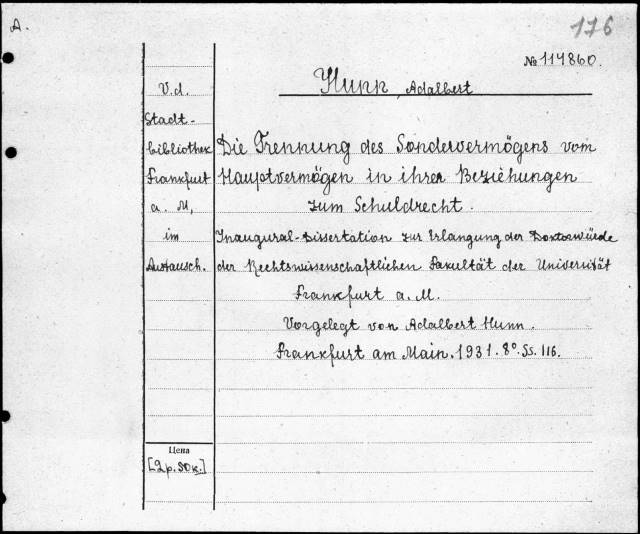 A.
176
№ 114860.
Hunn, Adalbert
V.d.
Stadt-
bibliothek
Frankfurt
a. M,
im
Austausch.
Die Trennung des Sondervermögens vom
Hauptvermögen in ihren Beziehungen
zum Schuldrecht.
Inaugural-Dissertation zur Erlangung der Doktorwürde
der Rechtswissenschaftlichen Fakultät der Universität
Frankfurt a. M.
Vorgelegt von Adalbert Hunn.
Frankfurt am Main. 1931. 8°. Ss. 116.
Цена
[2р. 50к.]